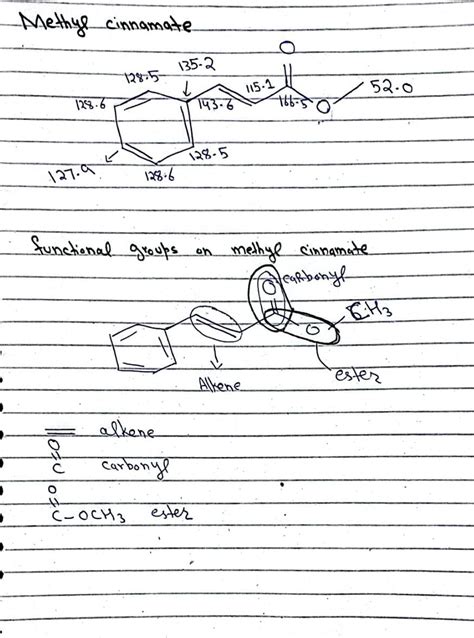 Methyl cinnamate
O
135.2
128.5
115.1
52.0
128.6
143.6
166.5
O
128.5
127.9
128.6
functional groups on methyl cinnamate
carbonyl
O
CH3
O
Alkene
ester
= alkene
O
C carbonyl
O
C-OCH3 ester